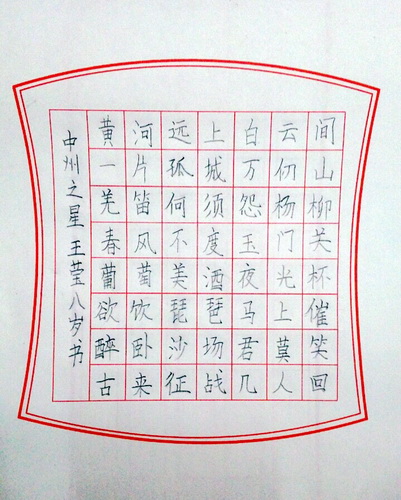 黄河远上白云间
一片孤城万仞山
羌笛何须怨杨柳
春风不度玉门关
葡萄美酒夜光杯
欲饮琵琶马上催
醉卧沙场君莫笑
古来征战几人回
中州之星 王莹八岁书